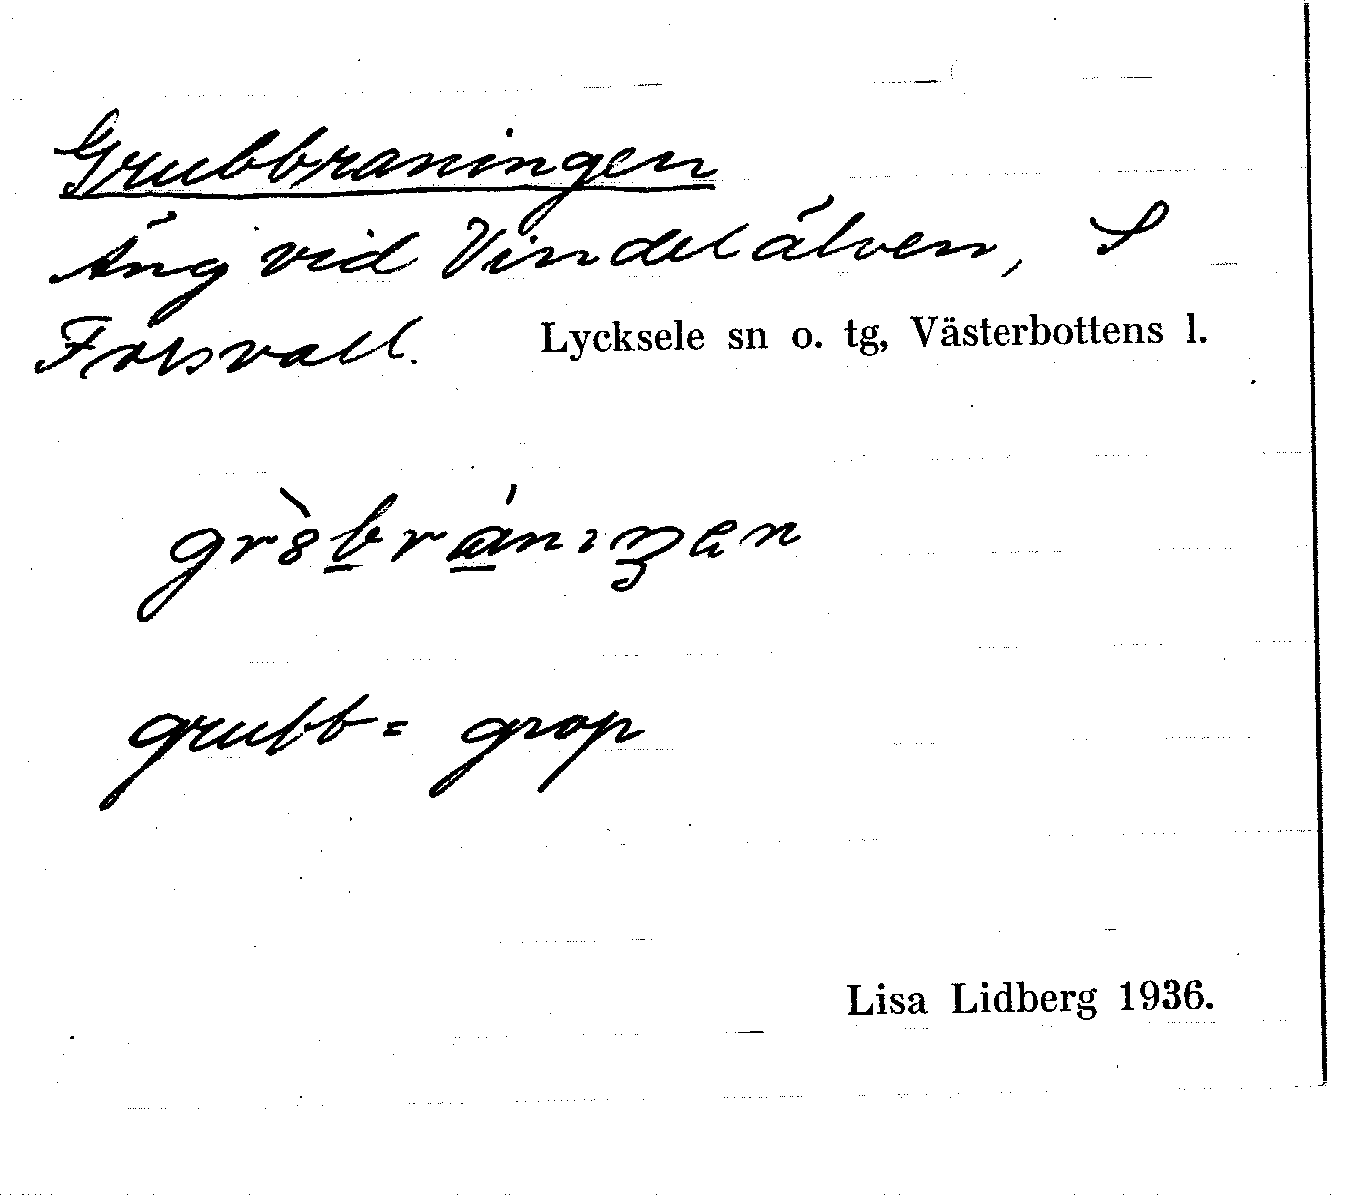 Grubbraningen
Äng vid Vindelälven, S
Forsvall. Lycksele sn o. tg, Västerbottens l.
grubb = grop
Lisa Lidberg 1936.